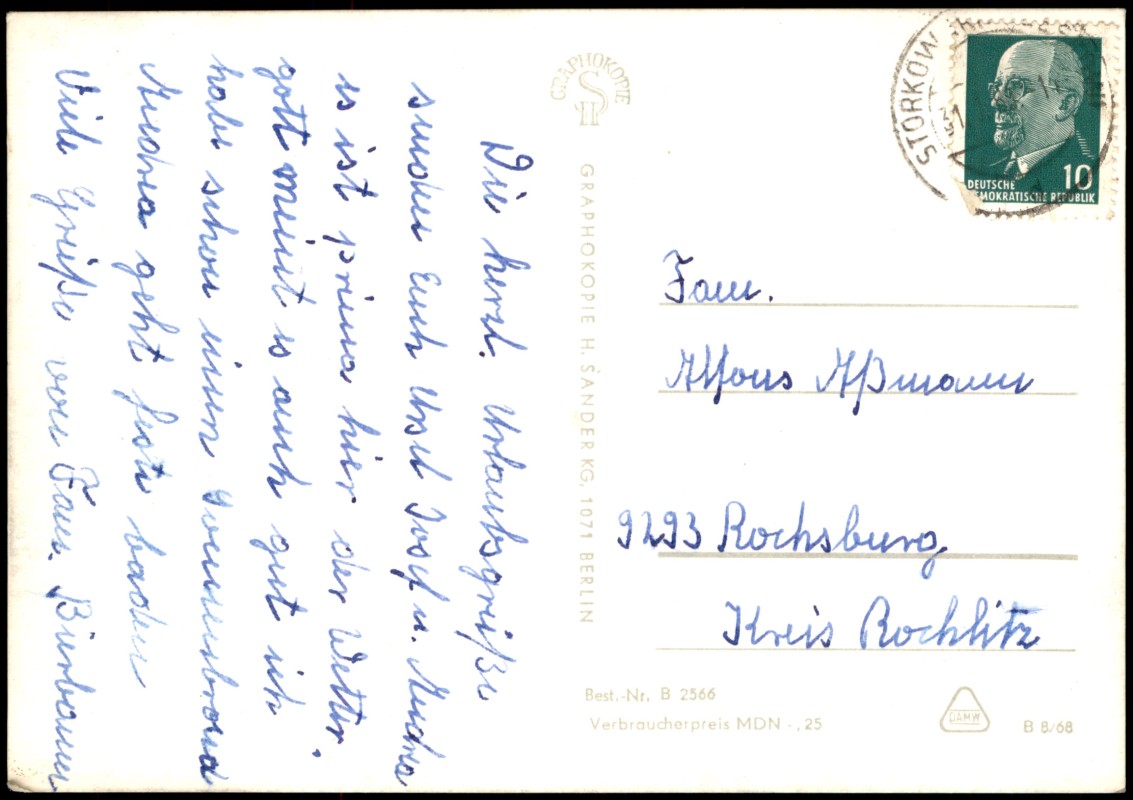 Die herzl. Urlaubsgrüße
senden Euch Ursel Josef u. Andrea
es ist prima hier der Wetter
gott meint es auch gut ich
habe schon einen Sonnenbrand
Andrea geht feste baden
Viele Grüße von Fam. Bierbaum
GRAPHOKOPIE
GRAPHOKOPIE H. SANDER KG, 1071 BERLIN
STORKOW
10
DEUTSCHE
DEMOKRATISCHE REPUBLIK
Fam.
Alfons Aßmann
9293 Rochsburg
Kreis Rochlitz
Best.-Nr. B 2566
Verbraucherpreis MDN -,25
DAMW
B 8/68